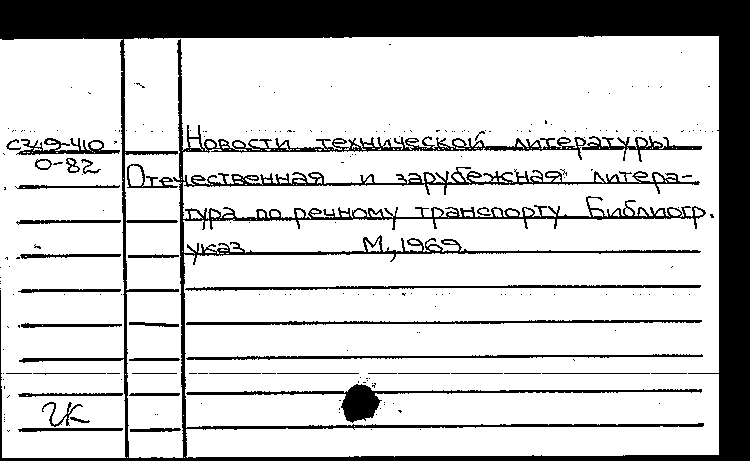 С349-410
О-82
Новости технической литературы
Отечественная и зарубежная литера-
тура по речному транспорту. Библиогр.
указ. М., 1969.
ЧК